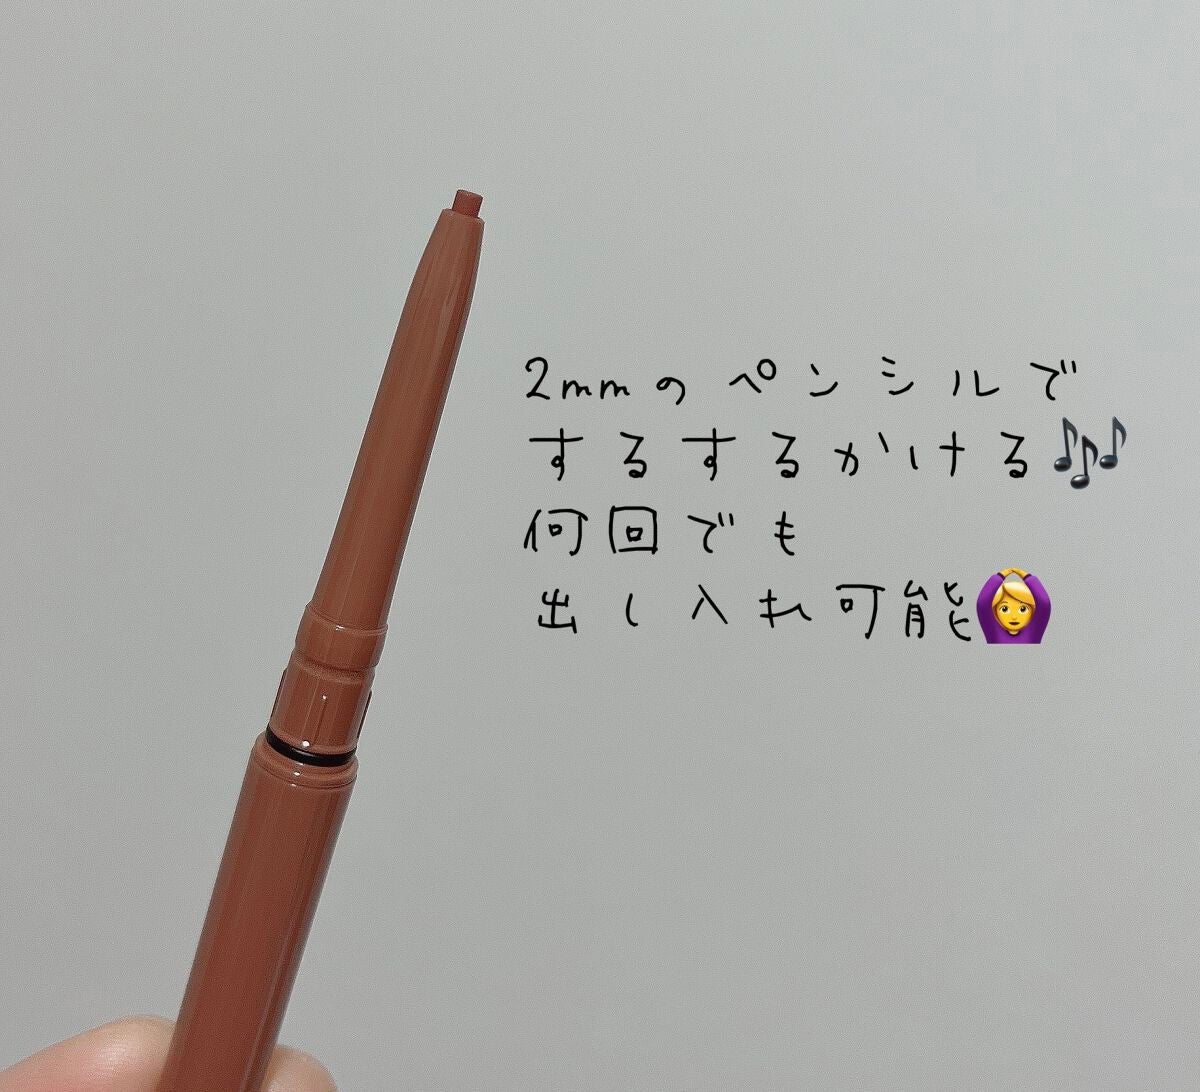 2mmのペンシルで
するするかける🎶
何回でも
出し入れ可能🙆‍♀️